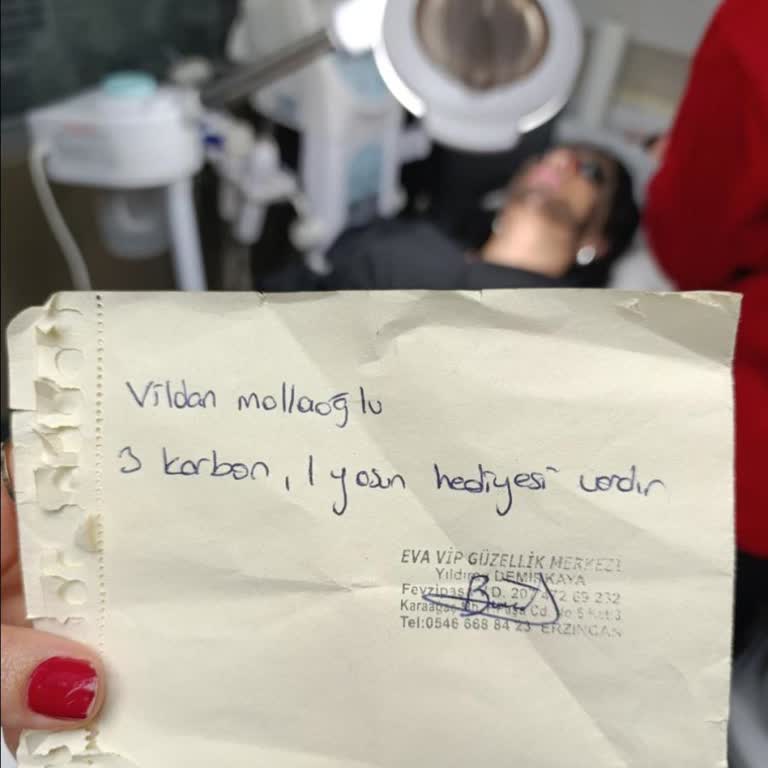 Vildan mollaoğlu
3 karbon, 1 yosun hediyesi vardır
EVA VİP GÜZELLİK MERKEZİ
Yıldırım DEMİRKAYA
Fevzipaşa V.D. 69 232
Karaağaç Cd. No 5 Kat:3
Tel:0546 668 84 23 ERZİNCAN